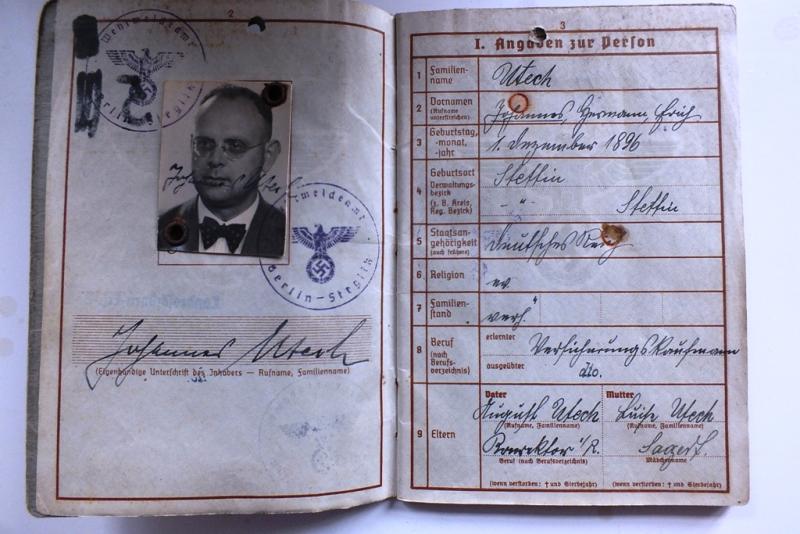 2
Wehrmeldeamt
Berlin-Steglitz
Wehrmeldeamt
Berlin-Steglitz
Johannes Utech
(Eigenhändige Unterschrift des Inhabers — Rufname, Familienname)
3
I. Angaben zur Person
1 Familien-
name
Utech
2 Vornamen
(Rufname
unterstreichen)
Johannes, Hermann Erich
3 Geburtstag,
-monat,
-jahr
1. Dezember 1896
4 Geburtsort
Verwaltungs-
bezirk
(z. B. Kreis,
Reg. Bezirk)
Stettin
- " -
Stettin
5 Staatsan-
gehörigkeit
(auch frühere)
Deutsches Reich
6 Religion
ev.
7 Familien-
stand
verh.
8 Beruf
(nach
Berufs-
verzeichnis)
erlernter
Versicherungskaufmann
ausgeübter
do.
9 Eltern
Vater
August Utech
(Rufname, Familienname)
Konrektor i/R.
Beruf (nach Berufsverzeichnis)
(wenn verstorben: † und Sterbejahr)
Mutter
Luise Utech
(Rufname, Familienname)
Sagert
Mädchenname
(wenn verstorben: † und Sterbejahr)